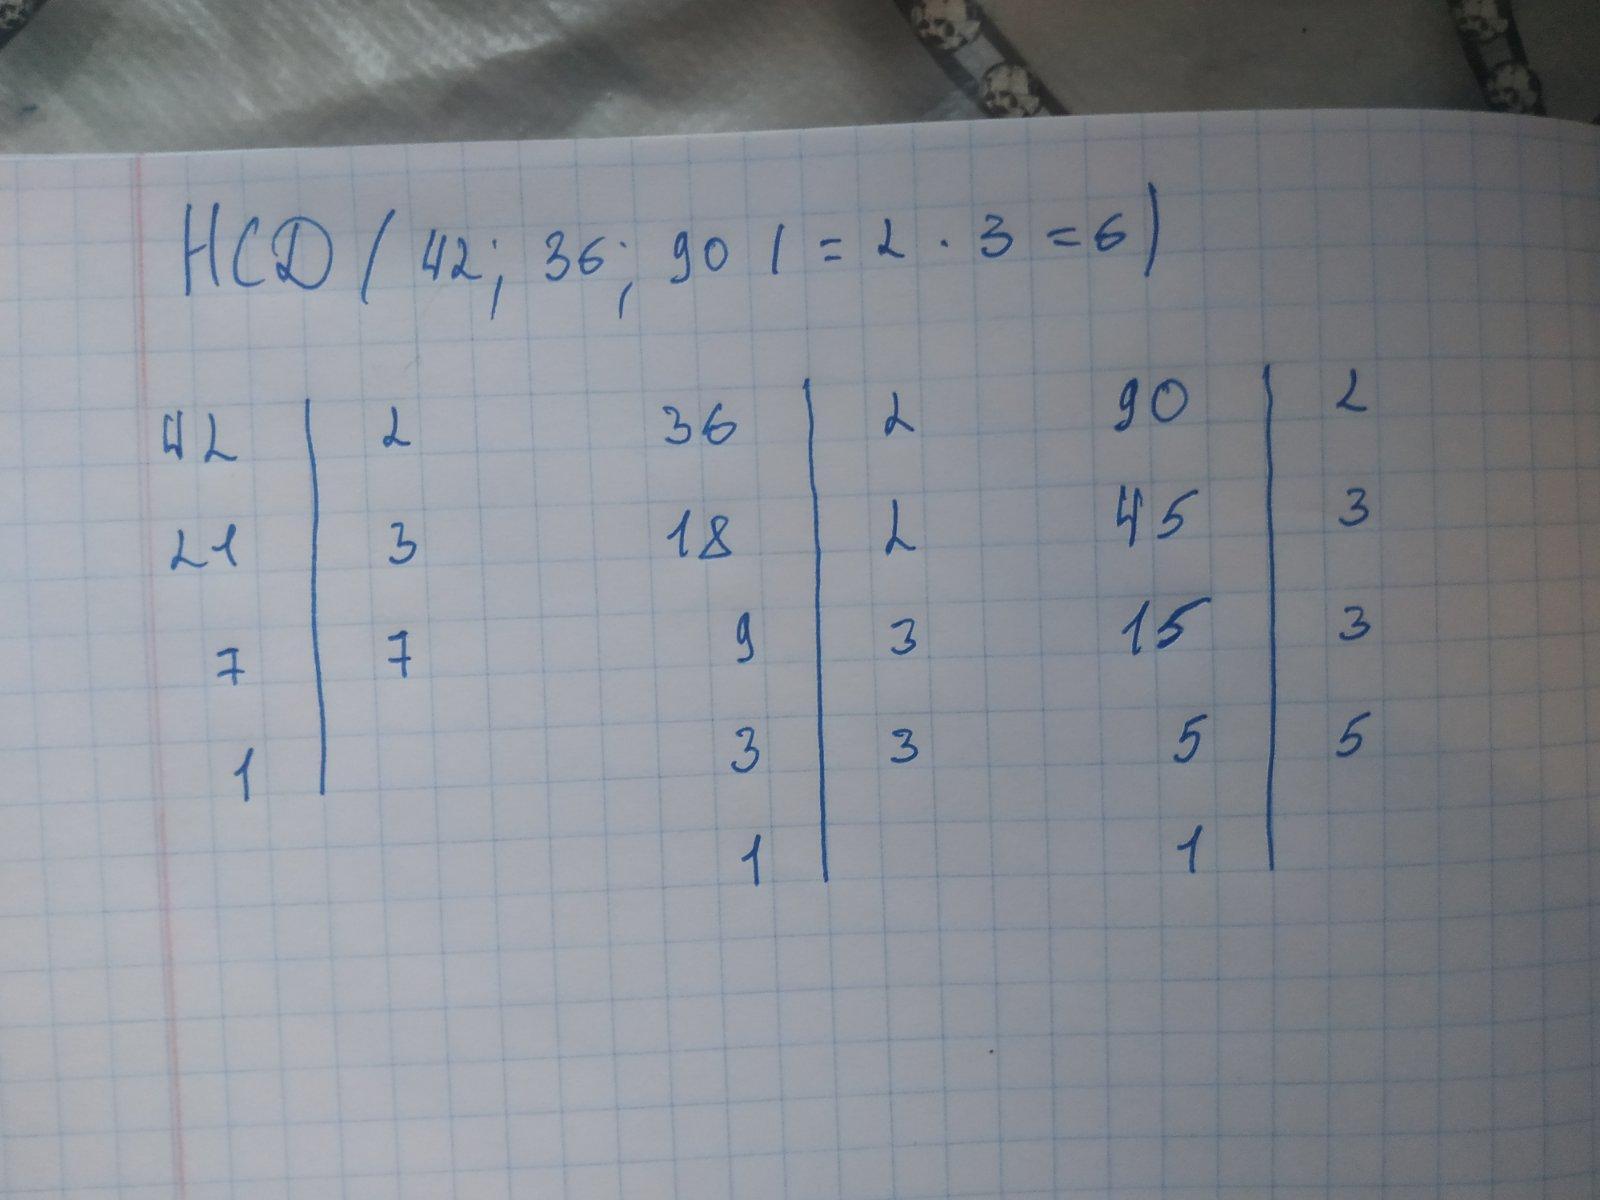 НСД ( 42; 36; 90 ( = 2 · 3 = 6 )
42 | 2 36 | 2 90 | 2
21 | 3 18 | 2 45 | 3
7 | 7 9 | 3 15 | 3
1 | 3 | 3 5 | 5
1 | 1 |